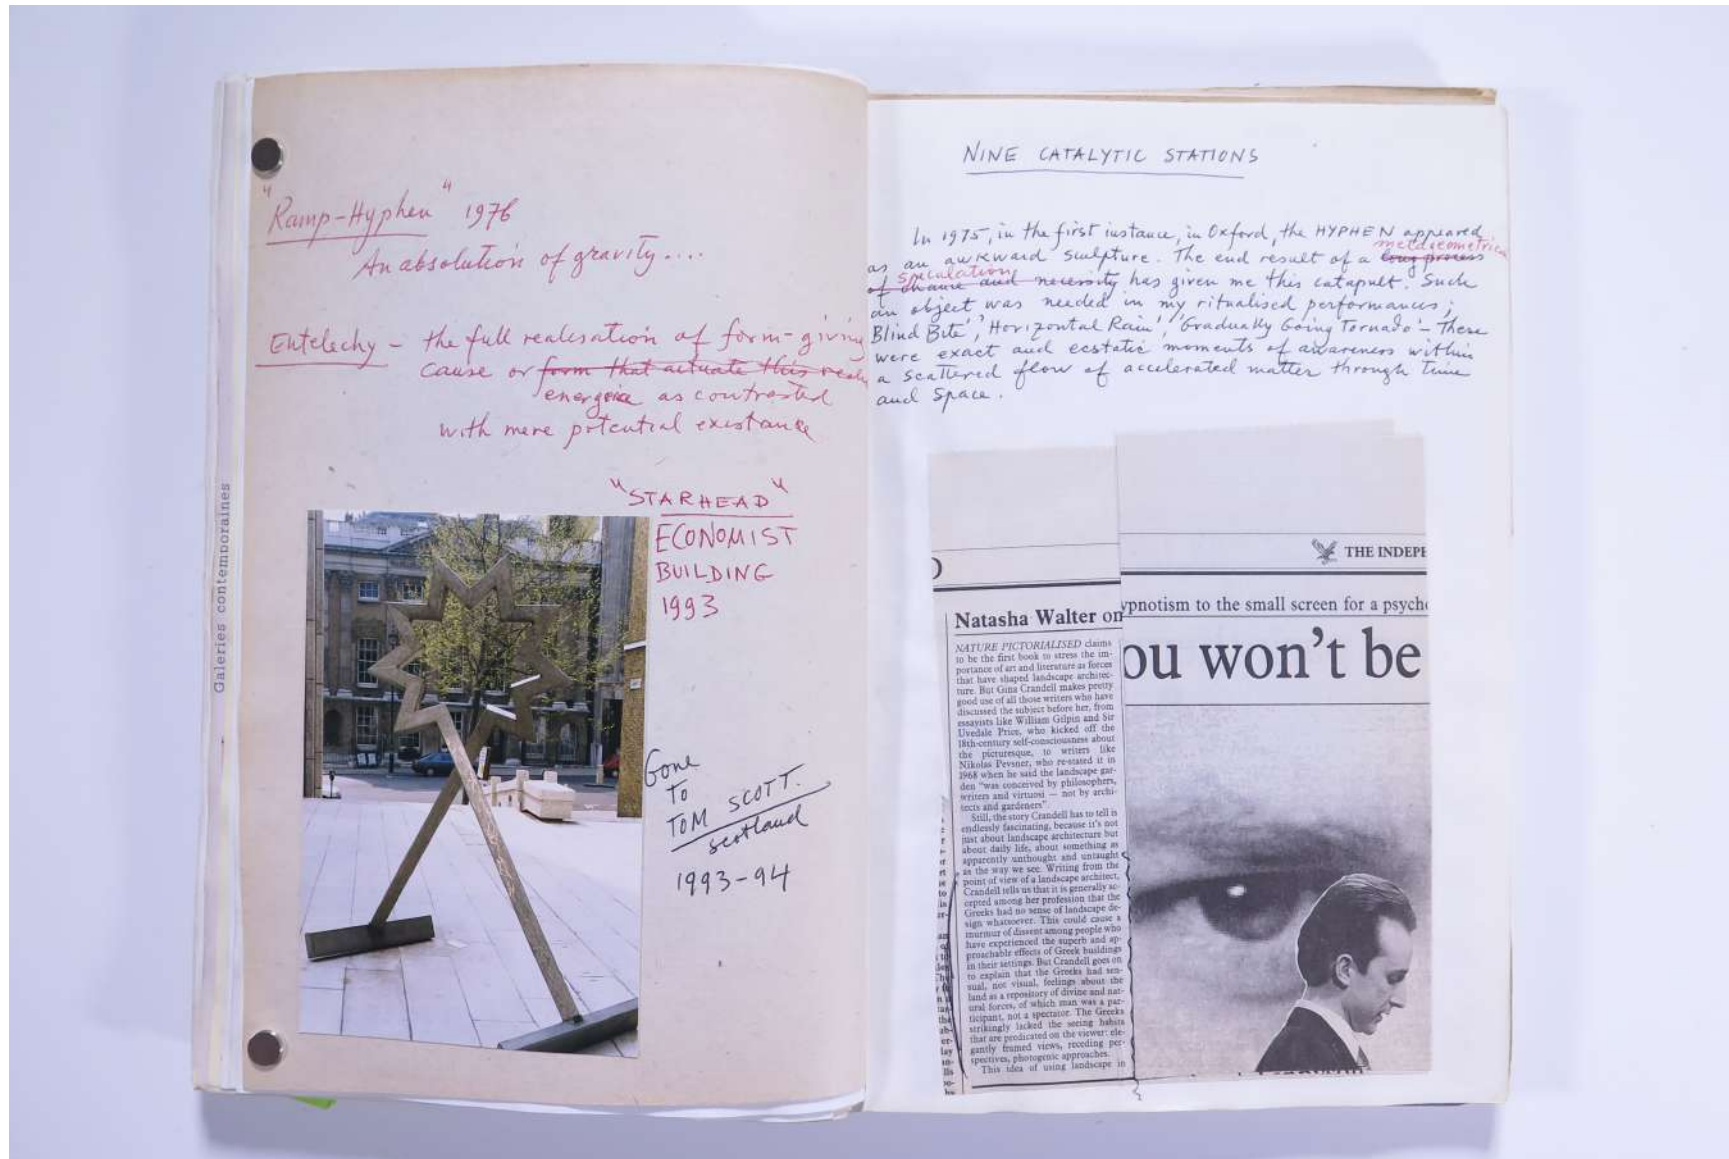 "Ramp-Hyphen" 1976
An absolution of gravity....
Entelechy – the full realisation of form-giving
cause or form that actuate this
energise as contrasted
with mere potential existance
"STARHEAD"
ECONOMIST
BUILDING
1993
Gone
To
TOM SCOTT.
scotland
1993-94
Galeries contemporaines
NINE CATALYTIC STATIONS
In 1975, in the first instance, in Oxford, the HYPHEN appeared
metageometrical
as an awkward sculpture. The end result of a long process
speculation
of chance and necessity has given me this catapult. Such
an object was needed in my ritualised performances;
'Blind Bite', 'Horizontal Rain', 'Gradually Going Tornado' – These
were exact and ecstatic moments of awareness within
a scattered flow of accelerated matter through time
and space.
THE INDEPE
Natasha Walter on
NATURE PICTORIALISED claims
to be the first book to stress the im-
portance of art and literature as forces
that have shaped landscape architec-
ture. But Gina Crandell makes pretty
good use of all those writers who have
discussed the subject before her, from
essayists like William Gilpin and Sir
Uvedale Price, who kicked off the
18th-century self-consciousness about
the picturesque, to writers like
Nikolas Pevsner, who re-stated it in
1968 when he said the landscape gar-
den "was conceived by philosophers,
writers and virtuosi — not by archi-
tects and gardeners".
Still, the story Crandell has to tell is
endlessly fascinating, because it's not
just about landscape architecture but
about daily life, about something as
apparently unthought and untaught
as the way we see. Writing from the
point of view of a landscape architect,
Crandell tells us that it is generally ac-
cepted among her profession that the
Greeks had no sense of landscape de-
sign whatsoever. This could cause a
murmur of dissent among people who
have experienced the superb and ap-
proachable effects of Greek buildings
in their settings. But Crandell goes on
to explain that the Greeks had sen-
sual, not visual, feelings about the
land as a repository of divine and nat-
ural forces, of which man was a par-
ticipant, not a spectator. The Greeks
strikingly lacked the seeing habits
that are predicated on the viewer: ele-
gantly framed views, receding per-
spectives, photogenic approaches.
This idea of using landscape in
ypnotism to the small screen for a psych
ou won't be